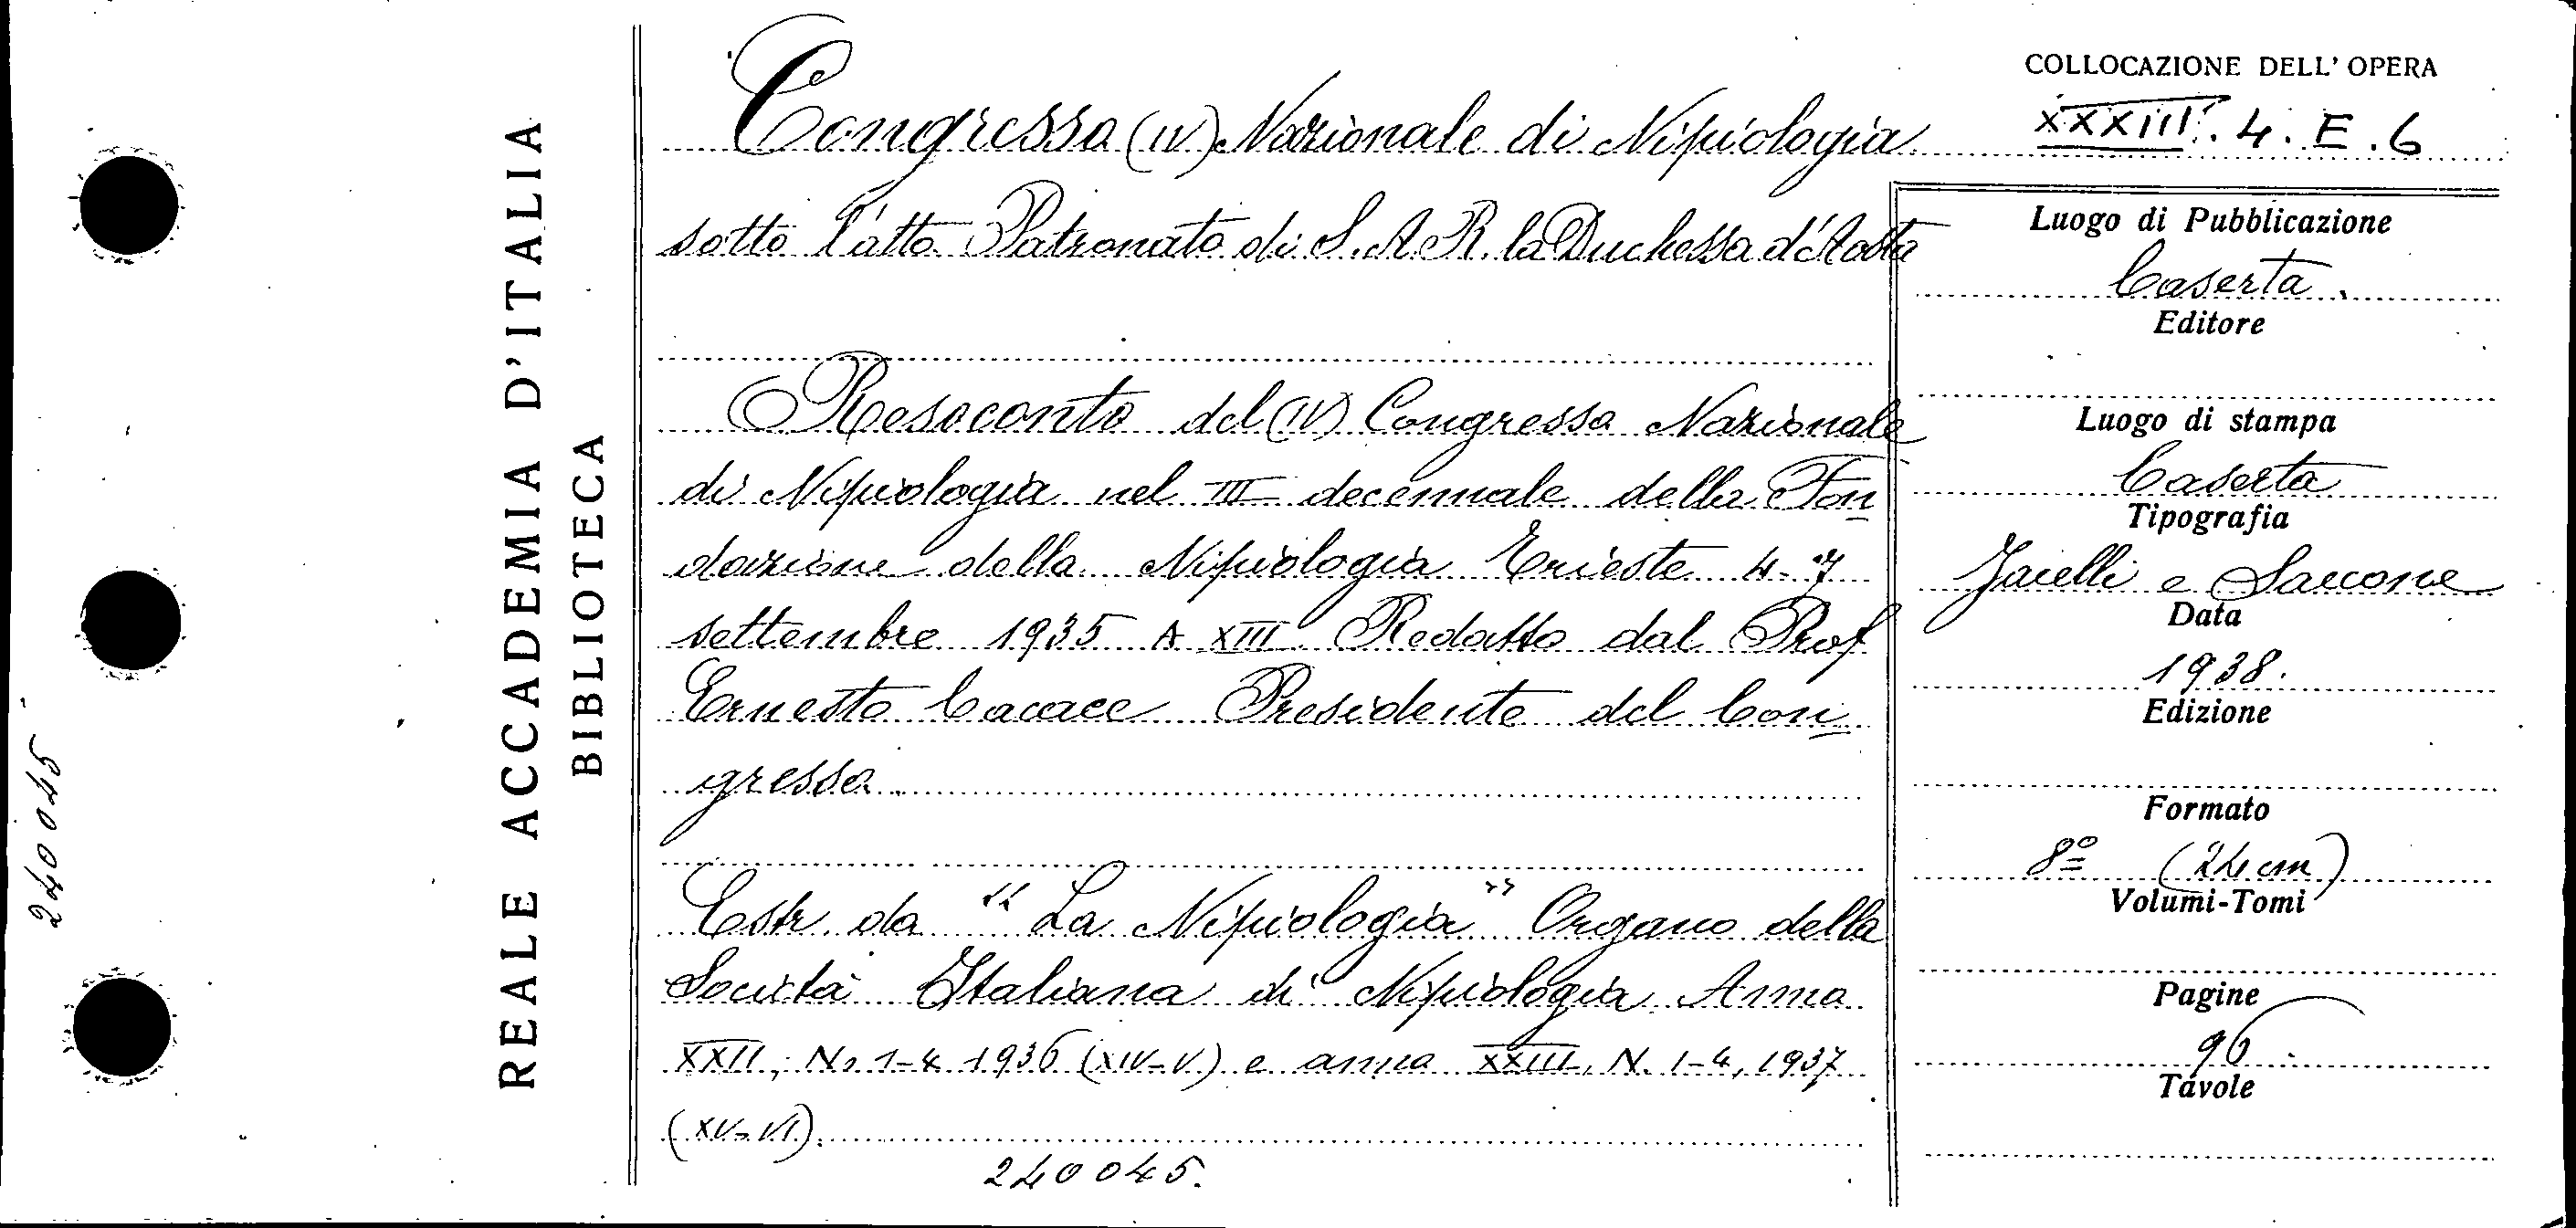 REALE ACCADEMIA D'ITALIA
BIBLIOTECA
240045
Congresso (IV) Nazionale di Nipiologia
sotto l'alto Patronato di S. A. R. la Duchessa d'Aosta
Resoconto del (IV) Congresso Nazionale
di Nipiologia nel III decennale della Fon
dazione della Nipiologia Trieste 4-7
settembre 1935 A XIII Redatto dal Prof
Ernesto Cacace Presidente del Con
gresso.
Estr. da "La Nipiologia" Organo della
Società Italiana di Nipiologia Anno
XXII, N. 1-4 1936 (XIV-V) e anno XXIII, N. 1-4, 1937
(XV-VI).
240045.
COLLOCAZIONE DELL'OPERA
XXXIII. 4. E. 6
Luogo di Pubblicazione
Caserta.
Editore
Luogo di stampa
Caserta
Tipografia
Jacelli e Saccone
Data
1938.
Edizione
Formato
8º (24 cm)
Volumi-Tomi
Pagine
96
Tavole